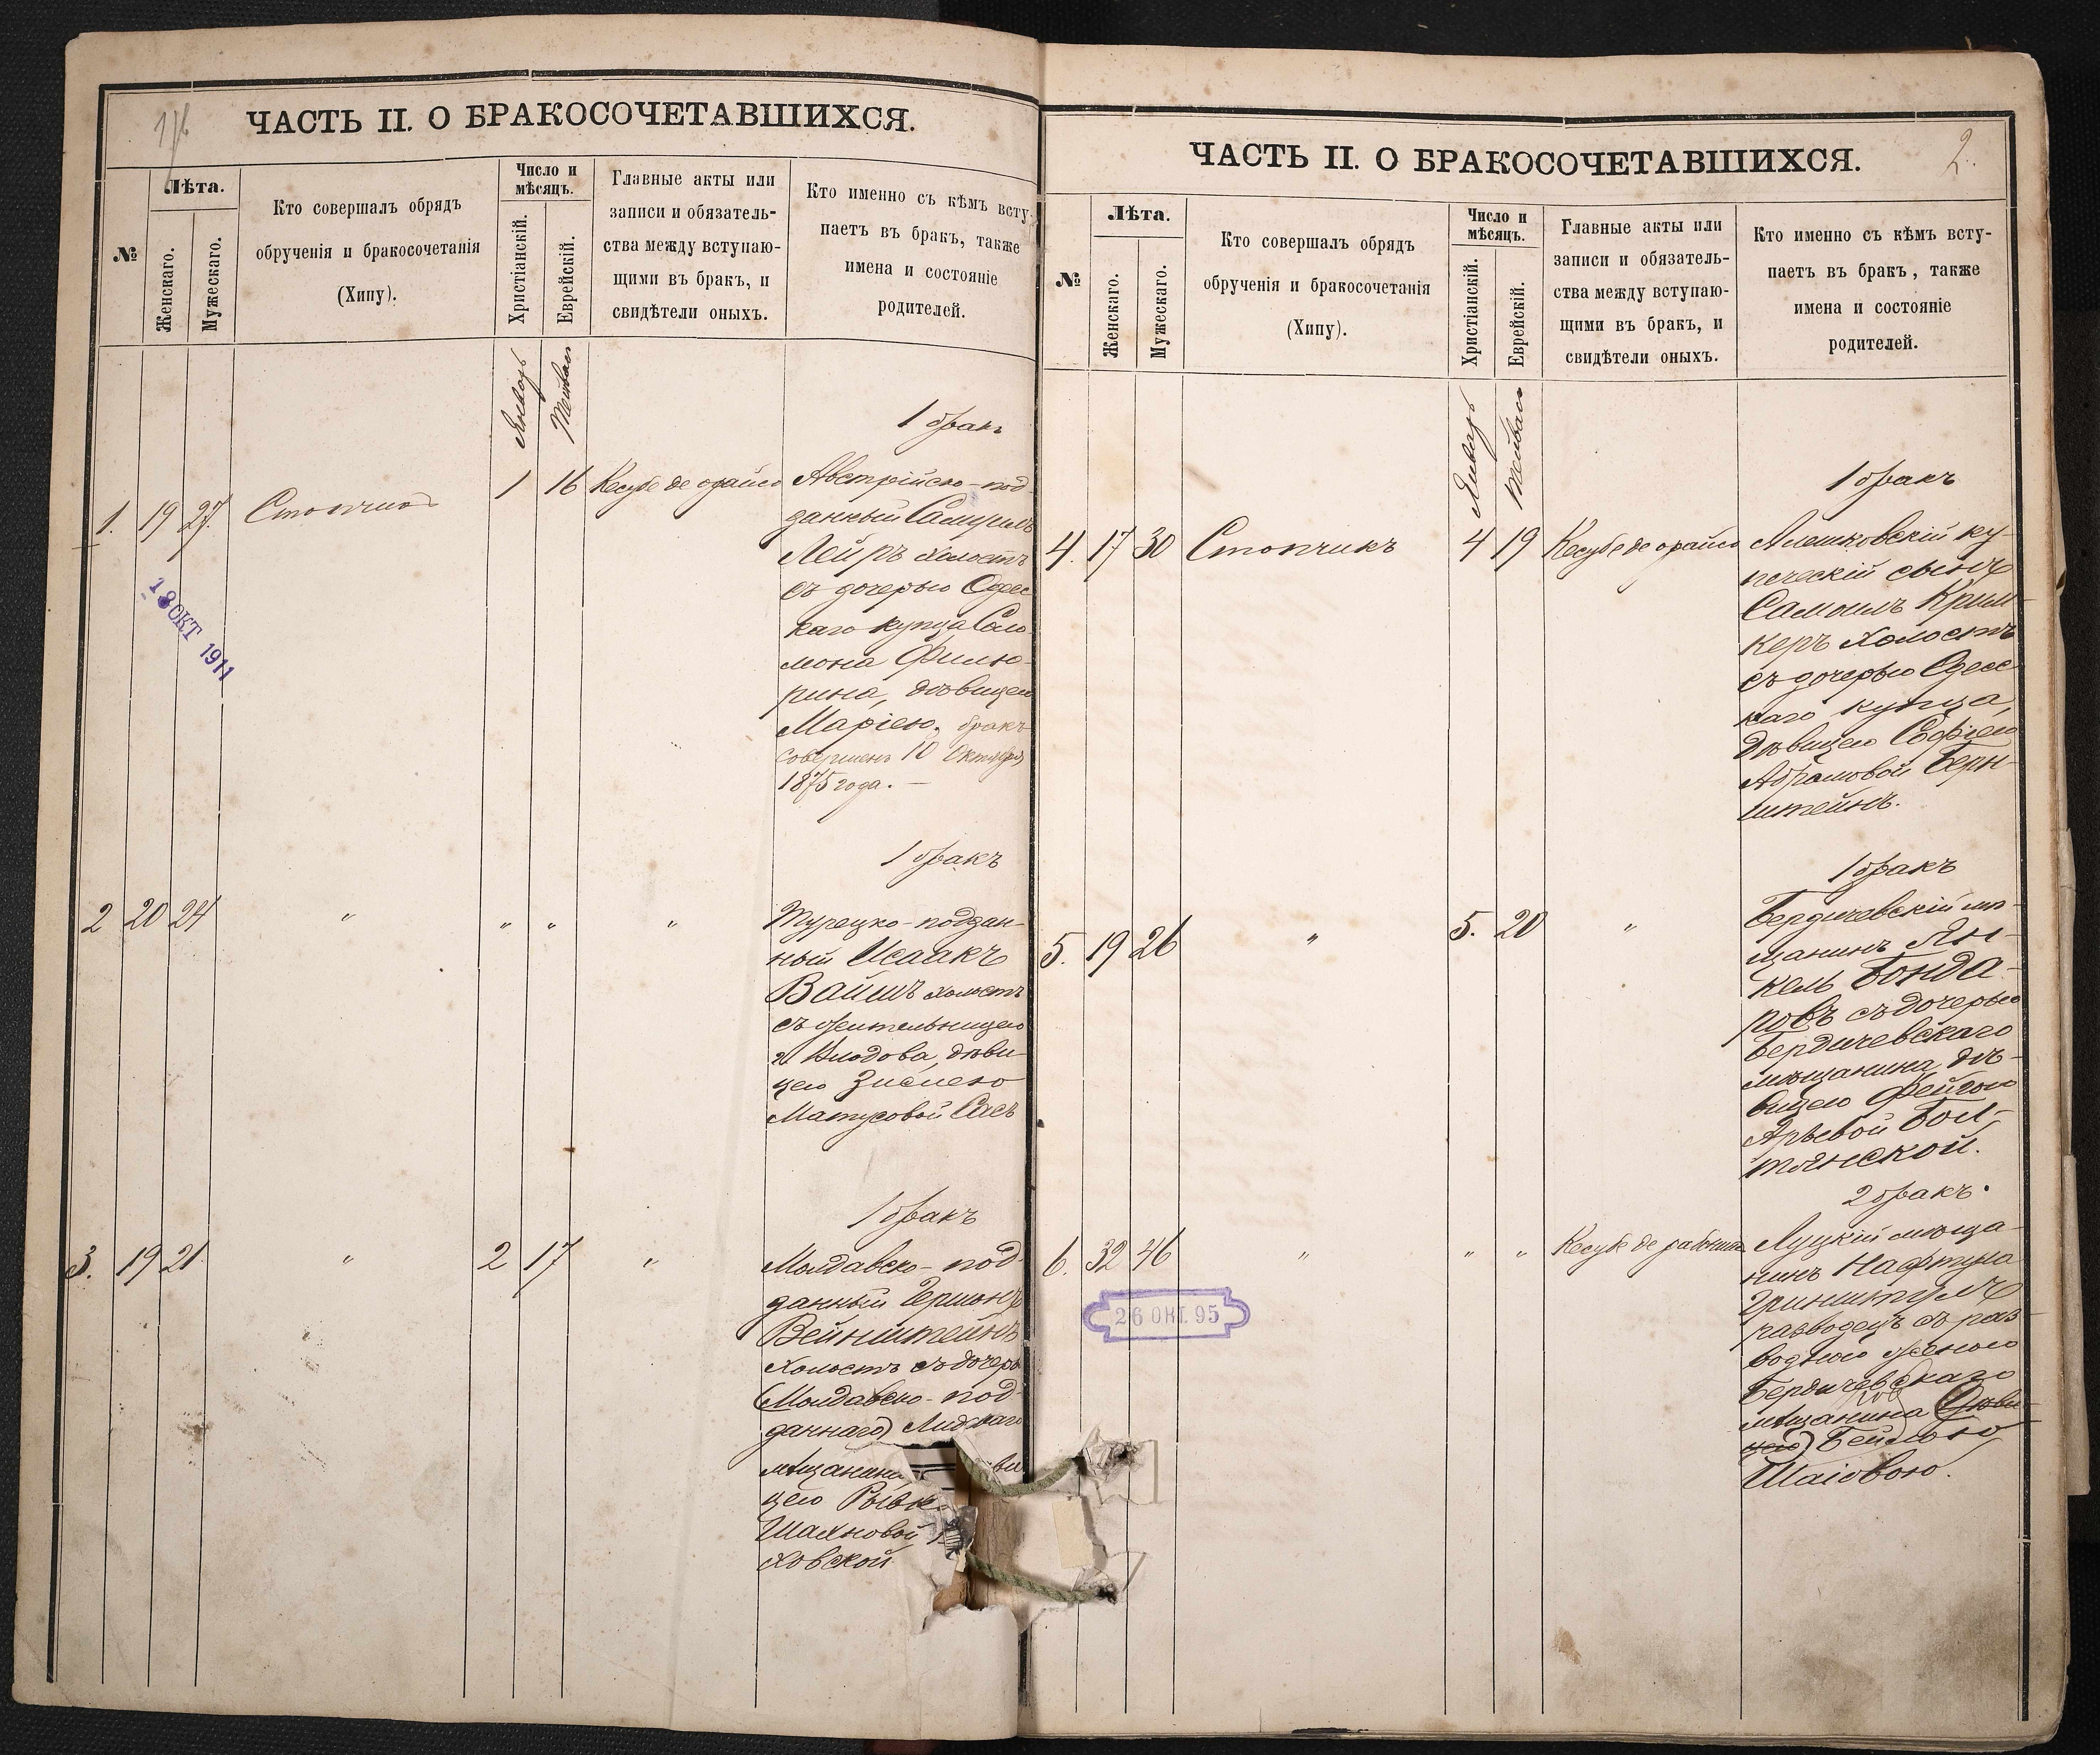 ЧАСТЬ II. О БРАКОСОЧЕТАВШИХСЯ.
№
Лѣта.
Женскаго.
Мужескаго.
Кто совершалъ обрядъ
обрученія и бракосочетанія
(Хипу).
Число и
мѣсяцъ.
Христіанскій.
Еврейскій.
Главные акты или
записи и обязатель-
ства между вступаю-
щими въ бракъ, и
свидѣтели оныхъ.
Кто именно съ кѣмъ всту-
паетъ въ бракъ, также
имена и состояніе
родителей.
Январь
1 бракъ
1. 19 27. 1 16 Кесубе де орайсо
Австрійско-под-
данный Самуилъ
Лейръ холостъ
съ дочерью Одес
каго купца Соло
мона Филю-
рина, дѣвицею
Маріею. бракъ
совершенъ 10 Октября
1875 года. —
18 ОКТ 1911
1 бракъ
2 20 24 " " " "
Турецко-поддан-
ный Исаакъ
Вайшъ холостъ
съ жительницею
дѣви-
цею Зислею
Матусовой Сасъ
1 бракъ
3. 19 21. " 2 17 "
Молдавско-под-
данный Гершонъ
Вейнштейнъ
холостъ съ дочерь
(Молдавско-под-
даннаго)
мѣщанина
цею Рывк
Шахновой
ховской
ЧАСТЬ II. О БРАКОСОЧЕТАВШИХСЯ.
2.
№
Лѣта.
Женскаго.
Мужескаго.
Кто совершалъ обрядъ
обрученія и бракосочетанія
(Хипу).
Число и
мѣсяцъ.
Христіанскій.
Еврейскій.
Главные акты или
записи и обязатель-
ства между вступаю-
щими въ бракъ, и
свидѣтели оныхъ.
Кто именно съ кѣмъ всту-
паетъ въ бракъ, также
имена и состояніе
родителей.
Январь
1 бракъ
4. 17 30 Стопчикъ 4 19 Кесубе де орайсо
Алешковскій ку-
печескій сынъ
Самоилъ Крым-
керъ холостъ
съ дочерью Одесс
каго купца,
дѣвицею Софіею
Абрамовой Берн-
штейнъ.
1 бракъ
5. 19 26 " 5. 20 "
Бердичевскій мѣ-
щанинъ Ян-
кель Бонда-
ровъ съ дочерью
Бердичевскаго
мѣщанина дѣ-
вицею Фейгою
Арьевой Бол-
тянской.
2 бракъ.
6. 32 46 " " "
Луцкій мѣща-
нинъ Нафтула
разводецъ съ раз-
водною женою
Бердичевскаго
мѣщанина (дѣви-
цею) Бейлою
Шаіовою.
26 ОКТ. 95